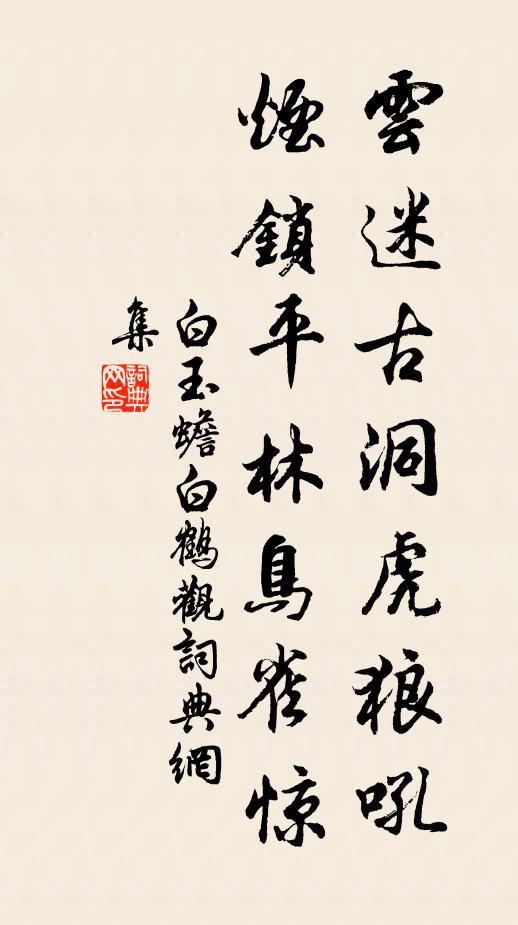 雲迷古洞虎狼吼
煙鎖平林鳥雀惊
白玉蟾白鶴觀詞典網
集
詞典
网印